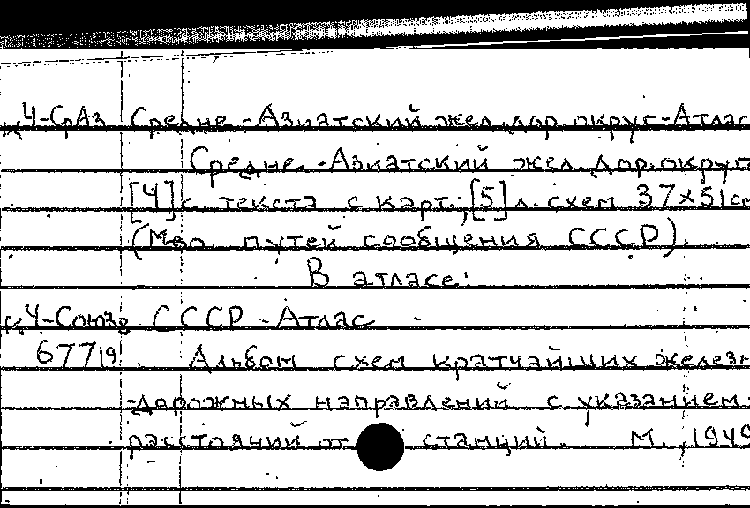 4-СрАз Средне-Азиатский жел.дор округ-Атлас
Средне-Азиатский жел. дор. округ
[4] с. текста с карт., [5] л. схем 37×51см
(Мво путей сообщения СССР)
В атласе:
4-Союз СССР - Атлас
677/9 Альбом схем кратчайших железн
-дорожных направлений с указанием
расстояний от станций. М., 1949